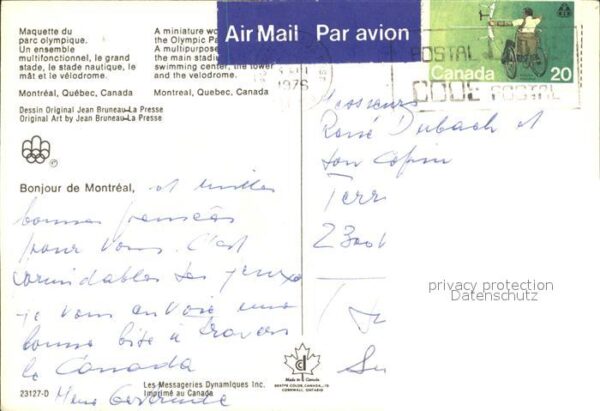 Maquette du
parc olympique.
Un ensemble
multifonctionnel, le grand
stade, le stade nautique, le
mât et le vélodrome.
Montréal, Québec, Canada
A miniature wo
the Olympic Pa
A multipurpose
the main stadi
swimming center, the tower
and the velodrome.
Montreal, Quebec, Canada
Dessin Original Jean Bruneau-La Presse
Original Art by Jean Bruneau-La Presse
Air Mail Par avion
1976
POSTAL
CODE POSTAL
Canada
20
Messieurs
René Dubach et
son copin
Terr
2300
Bonjour de Montréal, et milles
bonnes pensées
pour vous. C'est
formidables les jeux
je vous envoie une
bonne bise à travers
le Canada
privacy protection
Datenschutz
Made in Canada
23127-D
Les Messageries Dynamiques Inc.
Imprimé au Canada